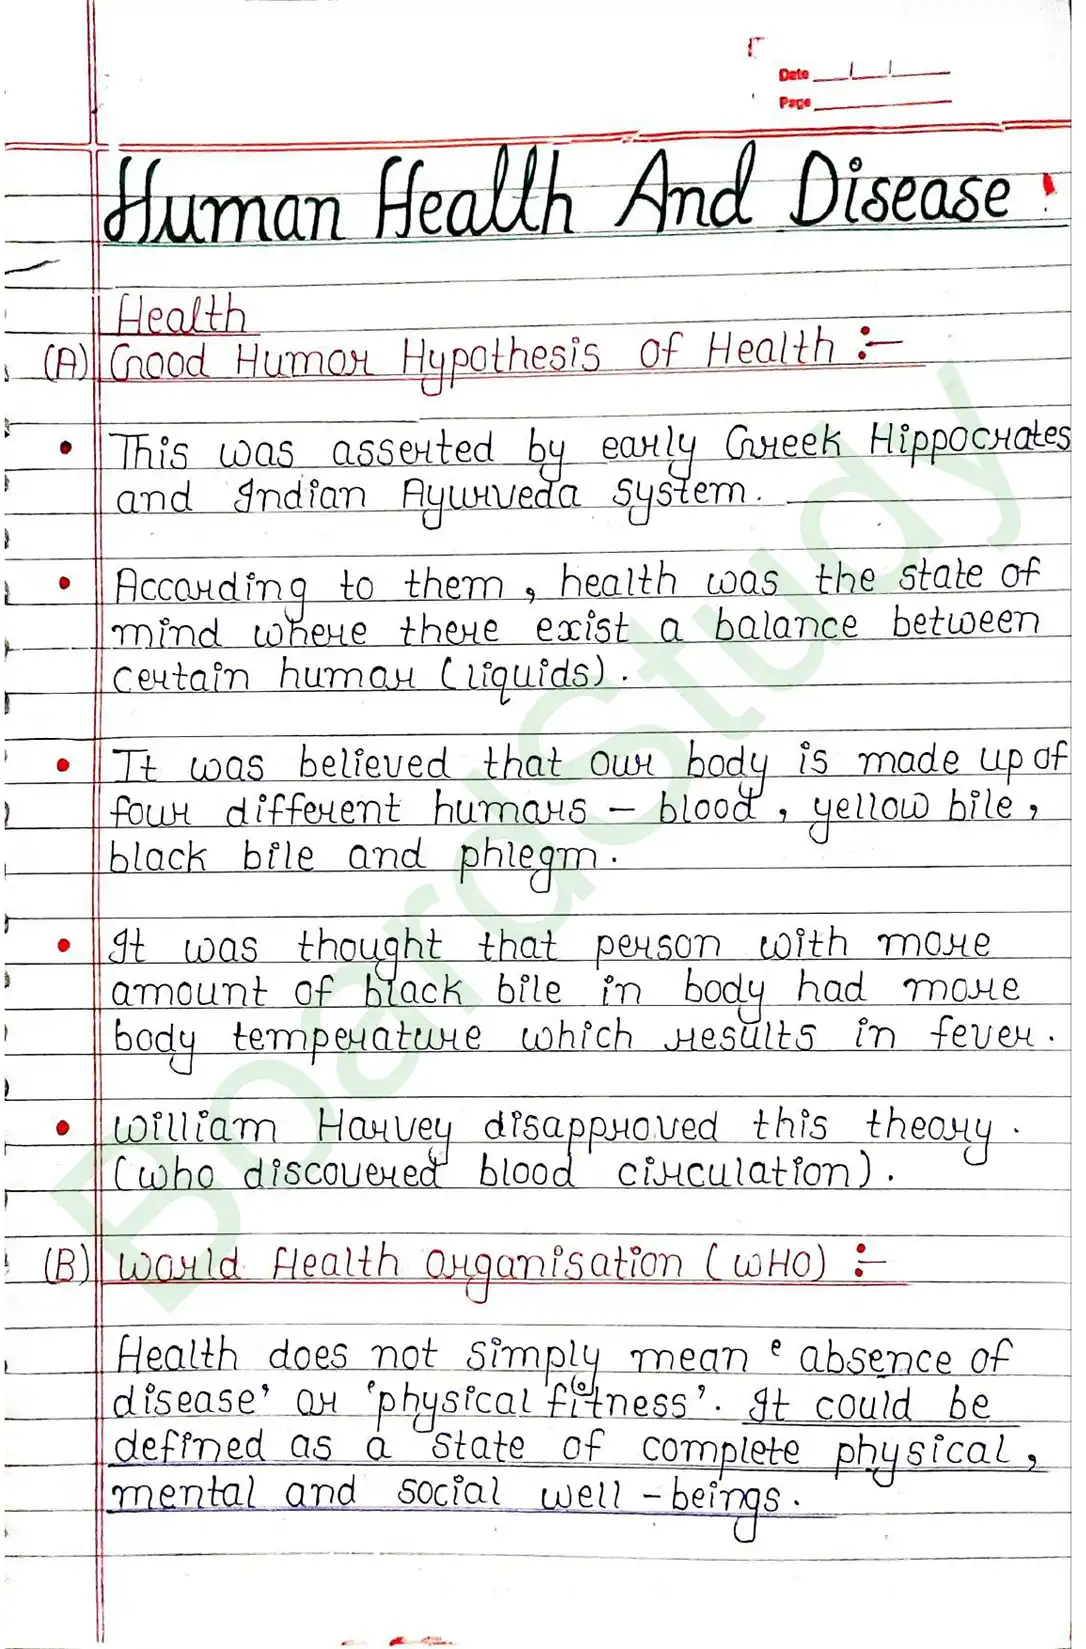 Date
Page
Human Health And Disease :
Health
(A) Good Humor Hypothesis of Health :-
• This was asserted by early Greek Hippocrates
and Indian Ayurveda system.
• According to them, health was the state of
mind where there exist a balance between
certain humor (liquids).
• It was believed that our body is made up of
four different humors - blood, yellow bile,
black bile and phlegm.
• It was thought that person with more
amount of black bile in body had more
body temperature which results in fever.
• William Harvey disapproved this theory.
(who discovered blood circulation).
(B) World Health Organisation (WHO) :-
Health does not simply mean ‘absence of
disease’ or ‘physical fitness’. It could be
defined as a state of complete physical,
mental and social well-beings.
BoardStudy